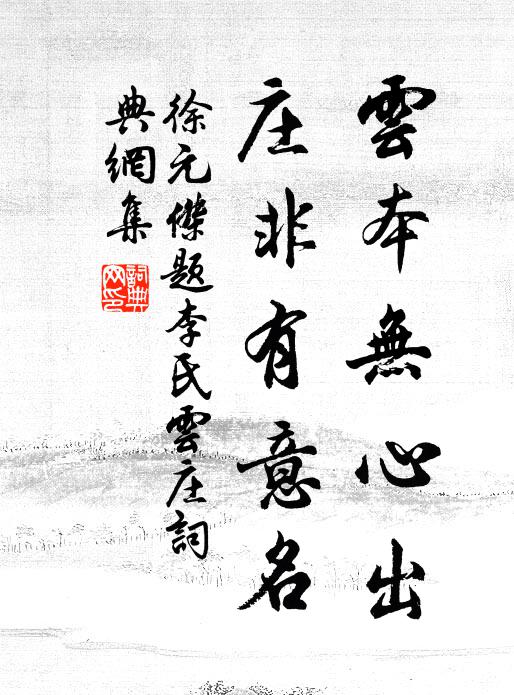 雲本無心出
庄非有意名
徐元傑題李氏雲庄詞
典網集
詞典网印